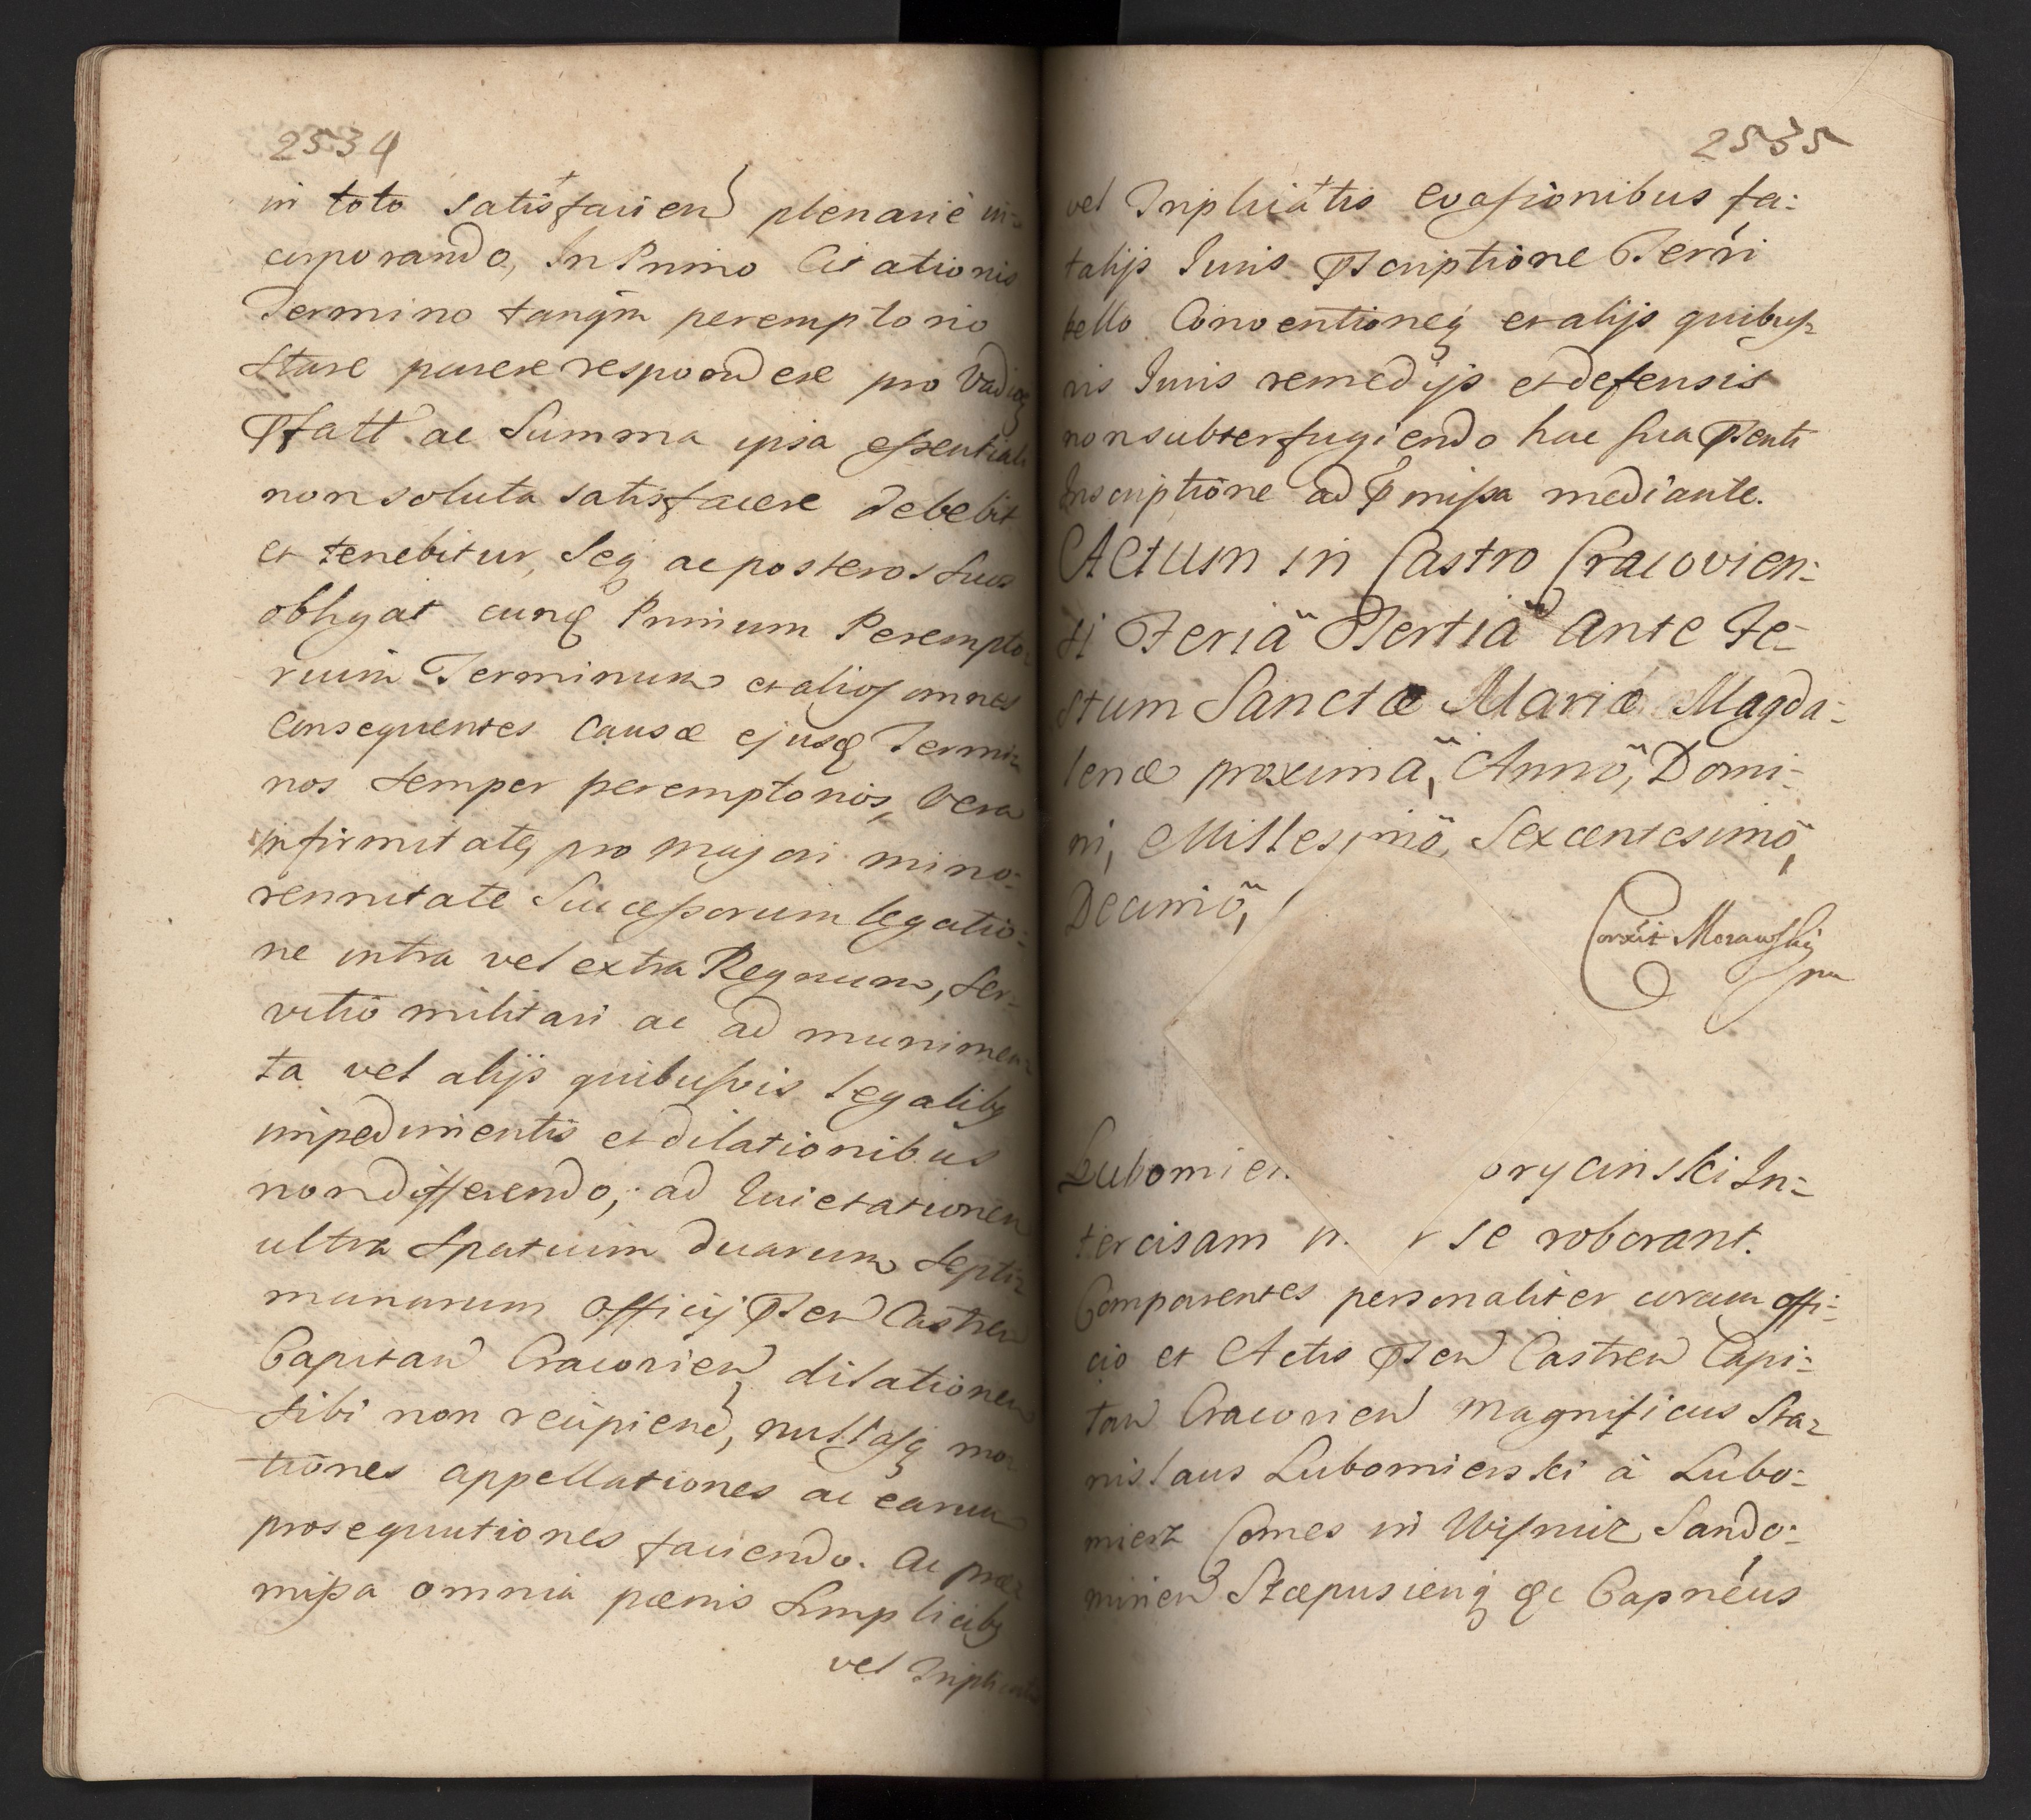 2534
in toto satisfaciend plenarie in-
corporando, In Primo Citationis
Termino tanqm peremptorio
stare parere respondere pro Vadioq
Pfatt ac Summa ipsa essentiali
non soluta satisfacere debebit
et tenebitur, Seq ac posteros suos
obligat eumq Primum Perempto-
rium Terminum et alios omnes
Consequentes Causæ ejusq Termi-
nos semper peremptorios, Vera
infirmitateq pro majori mino-
rennitate Successorum legatio-
ne intra vel extra Regnum, ser-
vitio militari ac ad munimen-
ta vel alijs quibusvis legalibq
impedimentis et dilationibus
non differendo, ad Quietationem
ultra Spatium duarum septi-
manarum Officij Psen Castren
Capitan Cracovien dilationem
sibi non recipiend, nullasq mo-
tiones appellationes ac earum
prosequutiones faciendo. Ac præ-
missa omnia pænis simplicibq
vel Triplicatis
2535
vel Triplicatis evasionibus fa-
talijs Juris Pscriptione Terrri
bello Conventioneq et alijs quibus-
vis Juris remedijs et defensis
non subterfugiendo hac sua Psenti
Inscriptione ad Pmissa mediante.
Actum in Castro Cracovien-
si Feriâ Tertiâ ante Fe-
stum Sanctæ Mariæ Magda-
lenæ proximâ, Annô, Domi-
ni, Millesimô, Sexcentesimô,
Decimô,
Corexit Morawski
mp
Lubomier orycinski In-
tercisam r se roborant.
Comparentes personaliter coram offi-
cio et Actis Psen Castren Capi-
tan Cracovien Magnificus Sta-
nislaus Lubomierski â Lubo-
mierz Comes in Wisnicz Sando-
mirien Scæpusienq &c Capneus